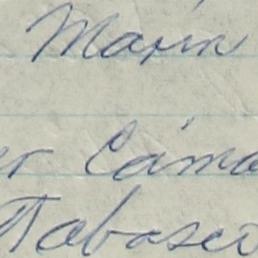 Marin
er Cáma
Tabasco